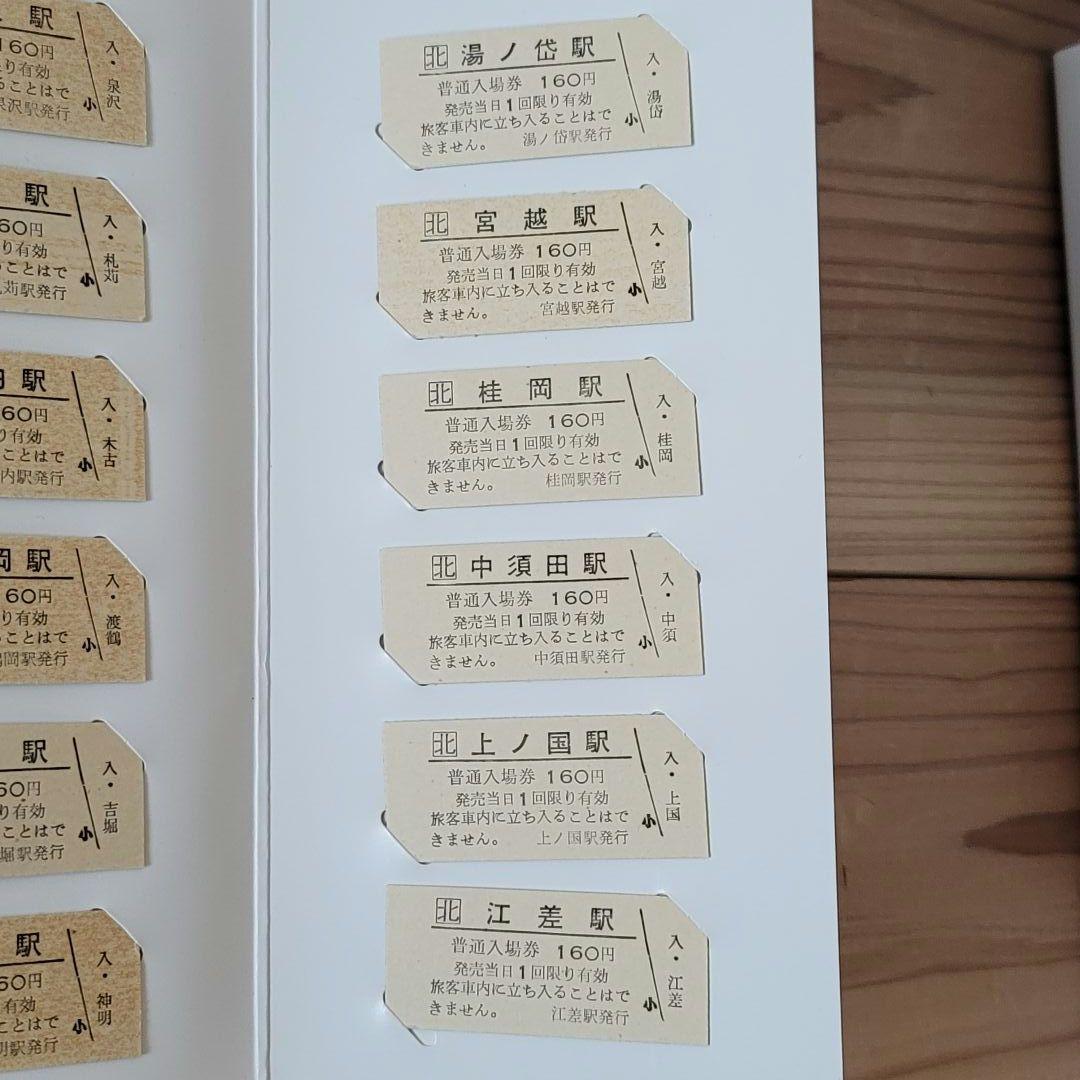 駅
160円
り有効
ることはで
泉沢駅発行
小
入・泉沢
駅
60円
り有効
ることはで
札苅駅発行
小
入・札苅
駅
160円
り有効
ことはで
内駅発行
小
入・木古
岡駅
160円
り有効
ことはで
鶴岡駅発行
小
入・渡鶴
駅
60円
り有効
ことはで
堀駅発行
小
入・吉堀
駅
60円
有効
ことはで
明駅発行
小
入・神明
北 湯ノ岱駅
普通入場券 160円
発売当日1回限り有効
旅客車内に立ち入ることはで
きません。 湯ノ岱駅発行
小
入・湯岱
北 宮越駅
普通入場券 160円
発売当日1回限り有効
旅客車内に立ち入ることはで
きません。 宮越駅発行
小
入・宮越
北 桂岡駅
普通入場券 160円
発売当日1回限り有効
旅客車内に立ち入ることはで
きません。 桂岡駅発行
小
入・桂岡
北 中須田駅
普通入場券 160円
発売当日1回限り有効
旅客車内に立ち入ることはで
きません。 中須田駅発行
小
入・中須
北 上ノ国駅
普通入場券 160円
発売当日1回限り有効
旅客車内に立ち入ることはで
きません。 上ノ国駅発行
小
入・上国
北 江差駅
普通入場券 160円
発売当日1回限り有効
旅客車内に立ち入ることはで
きません。 江差駅発行
小
入・江差